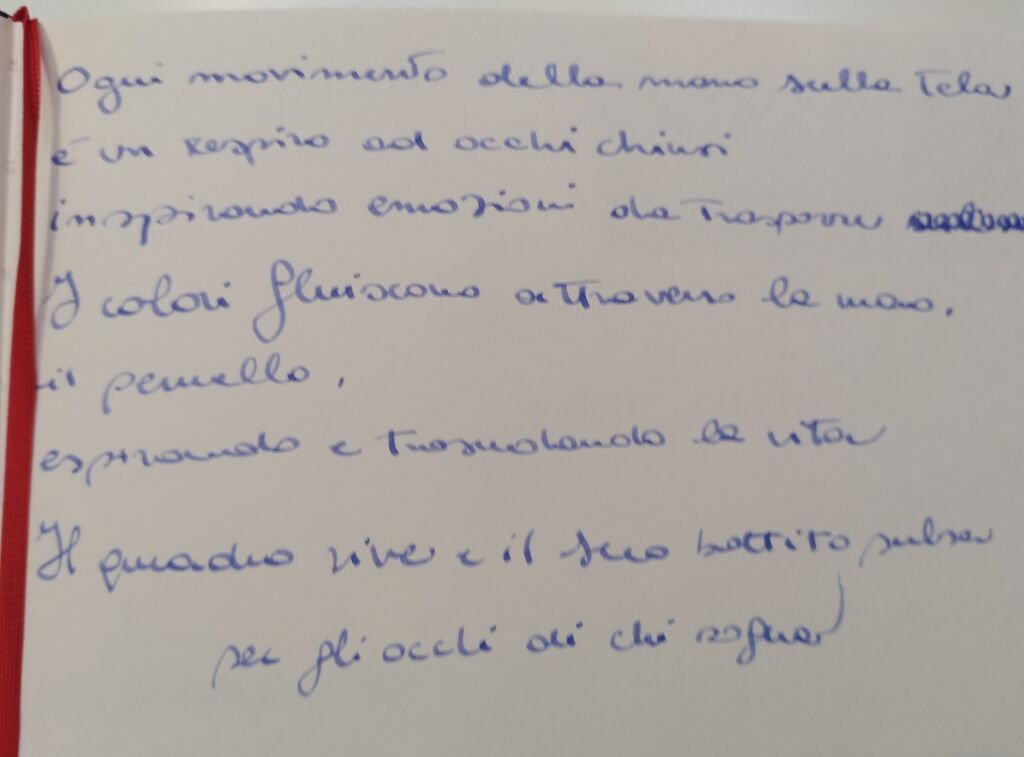 Ogni movimento della mano sulla tela
è un respiro ad occhi chiusi
inspirando emozioni da
I colori fluiscono attraverso la mano,
il pennello,
espirando e trasudando la vita
Il quadro vive e il suo battito pulsa
per gli occhi di chi sogna